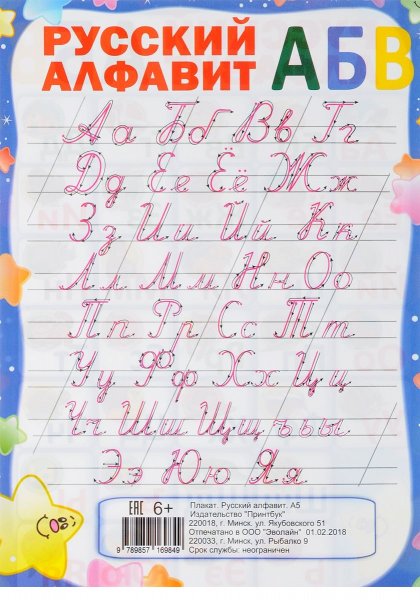 РУССКИЙ
АЛФАВИТ АБВ
Аа Бб Вв Гг
Дд Ее Ёё Жж
Зз Ии Йй Кк
Лл Мм Нн Оо
Пп Рр Сс Тт
Уу Фф Хх Цц
Чч Шш Щщ ъ ь ы
Ээ Юю Яя
ЕАС 6+
9 789857 169849
Плакат. Русский алфавит. А5
Издательство "Принтбук"
220018, г. Минск, ул. Якубовского 51
Отпечатано в ООО "Эволайн" 01.02.2018
220033, г. Минск, ул. Рыбалко 9
Срок службы: неограничен